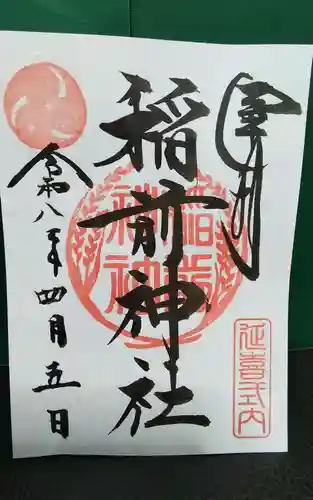 奉拝
延喜式内
稲前神社
稲前神社
令和八年四月五日